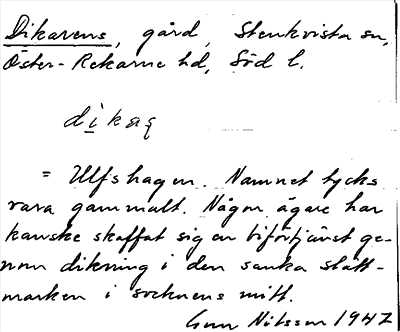 Dikarens, gård, Stenkvista sn,
Öster-Rekarne hd, Söd l.
dikaɳ
= Ulfshagen. Namnet tycks
vara gammalt. Någon ägare har
kanske skaffat sig en biförtjänst ge-
nom dikning i den sanka slätt-
marken i socknens mitt.
Gun Nilsson 1947